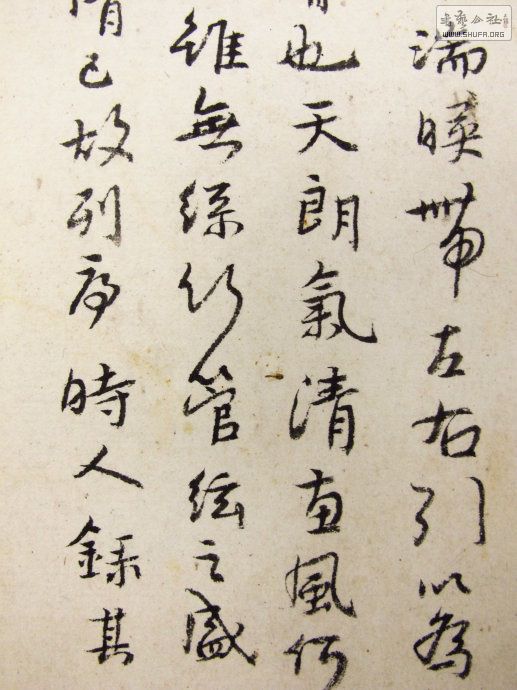 書藝公社
WWW.SHUFA.ORG
湍暎帶左右引以為
也天朗氣清惠風和
雖無絲竹管絃之盛
已故列序時人錄其